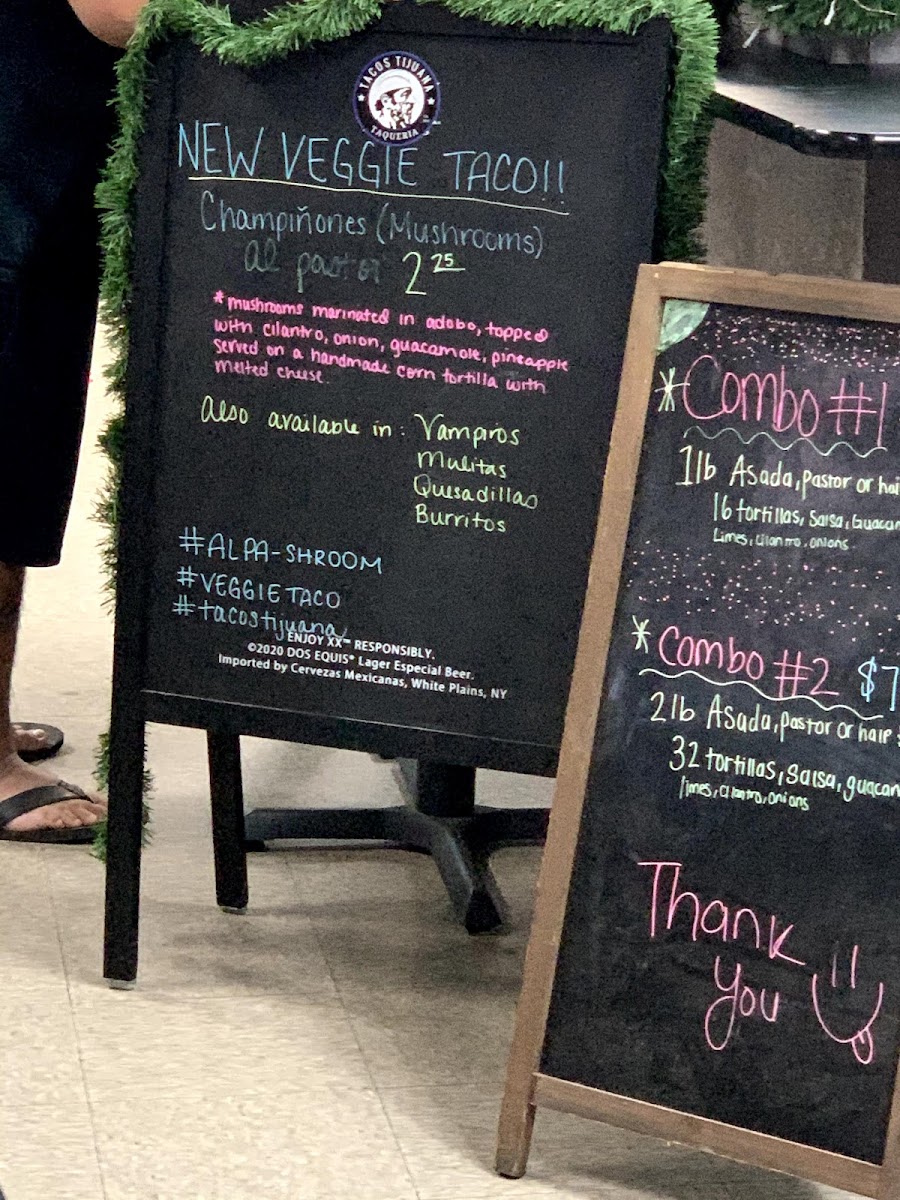 TACOS TIJUANA
TAQUERIA
NEW VEGGIE TACO!!
Champiñones (Mushrooms)
al pastor 2 25
*mushrooms marinated in adobo, topped
with cilantro, onion, guacamole, pineapple
served on a handmade corn tortilla with
melted cheese.
Also available in: Vampiros
Mulitas
Quesadillas
Burritos
#ALPA-SHROOM
#VEGGIETACO
#tacostijuana
ENJOY XX™ RESPONSIBLY.
©2020 DOS EQUIS® Lager Especial Beer.
Imported by Cervezas Mexicanas, White Plains, NY
*Combo #1
1lb Asada, pastor or hal
16 tortillas, Salsa, Guacam
Limes, cilantro, onions.
*Combo #2 $7
2lb Asada, pastor or half
32 tortillas, Salsa, guacam
limes, cilantro, onions
Thank
You